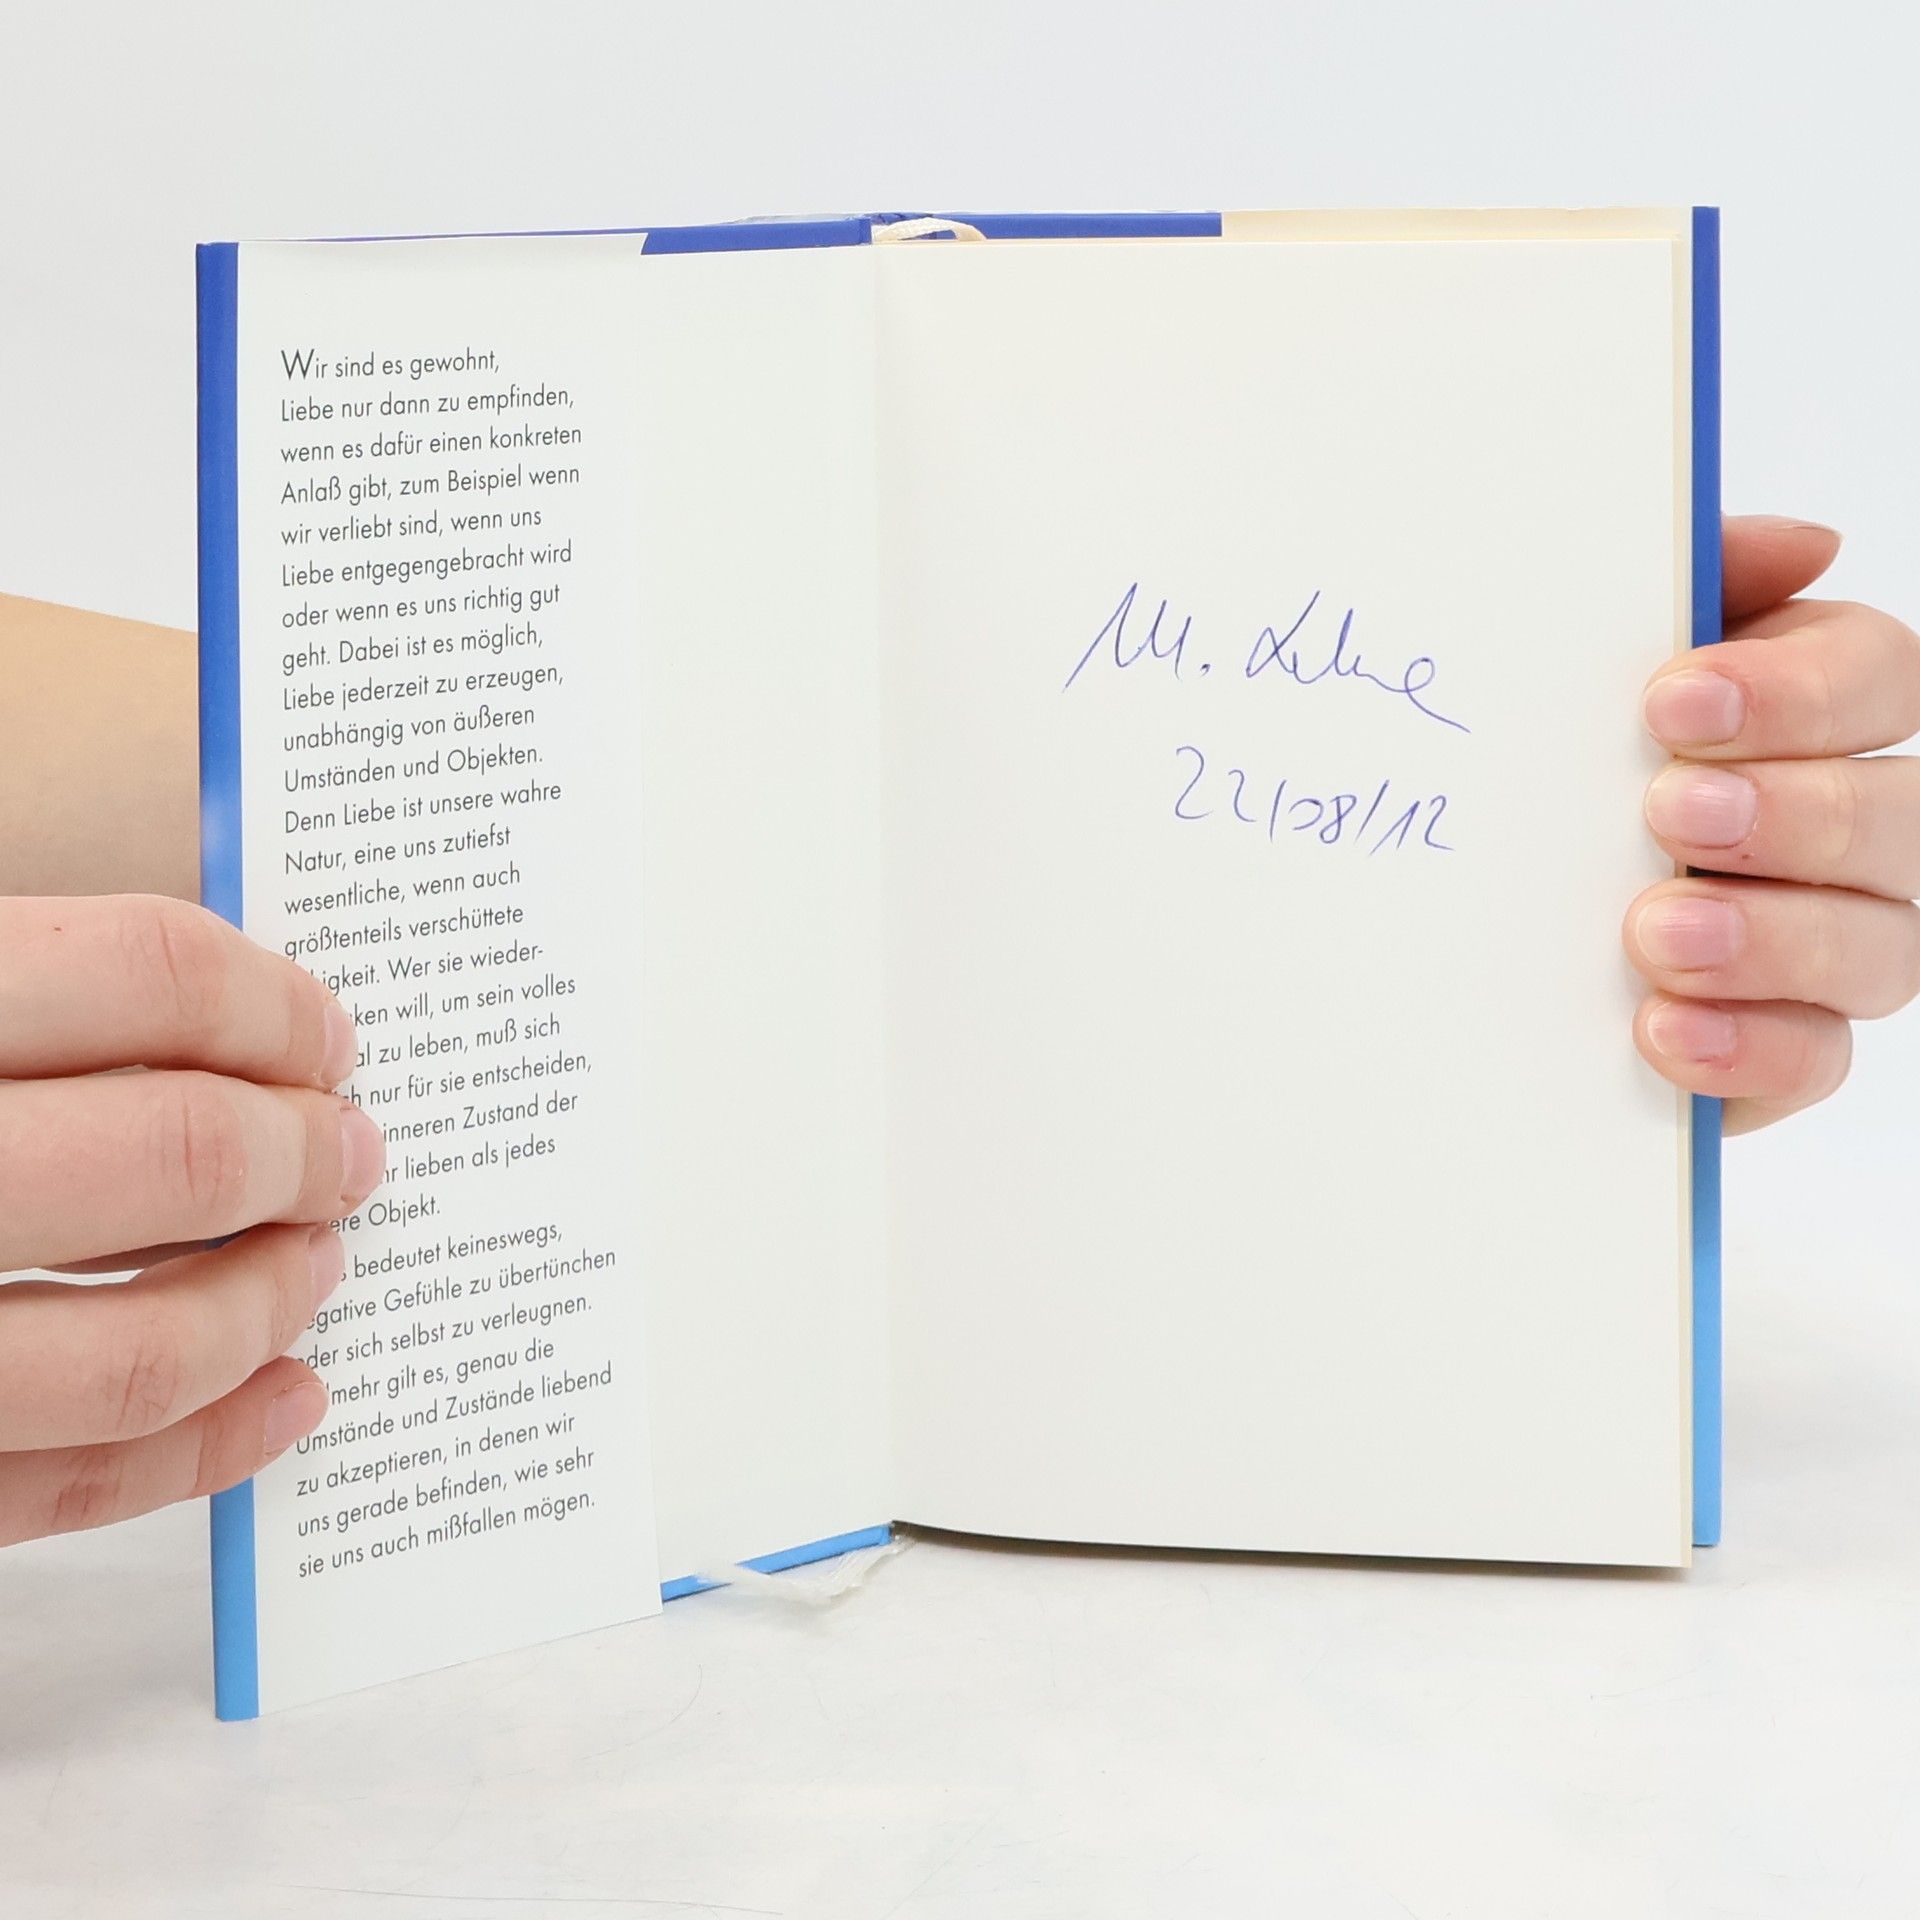 Wir sind es gewohnt,
Liebe nur dann zu empfinden,
wenn es dafür einen konkreten
Anlaß gibt, zum Beispiel wenn
wir verliebt sind, wenn uns
Liebe entgegengebracht wird
oder wenn es uns richtig gut
geht. Dabei ist es möglich,
Liebe jederzeit zu erzeugen,
unabhängig von äußeren
Umständen und Objekten.
Denn Liebe ist unsere wahre
Natur, eine uns zutiefst
wesentliche, wenn auch
größtenteils verschüttete
igkeit. Wer sie wieder-
ken will, um sein volles
al zu leben, muß sich
h nur für sie entscheiden,
inneren Zustand der
hr lieben als jedes
ere Objekt.
bedeutet keineswegs,
gative Gefühle zu übertünchen
der sich selbst zu verleugnen.
mehr gilt es, genau die
Umstände und Zustände liebend
zu akzeptieren, in denen wir
uns gerade befinden, wie sehr
sie uns auch mißfallen mögen.
M.
22/08/12